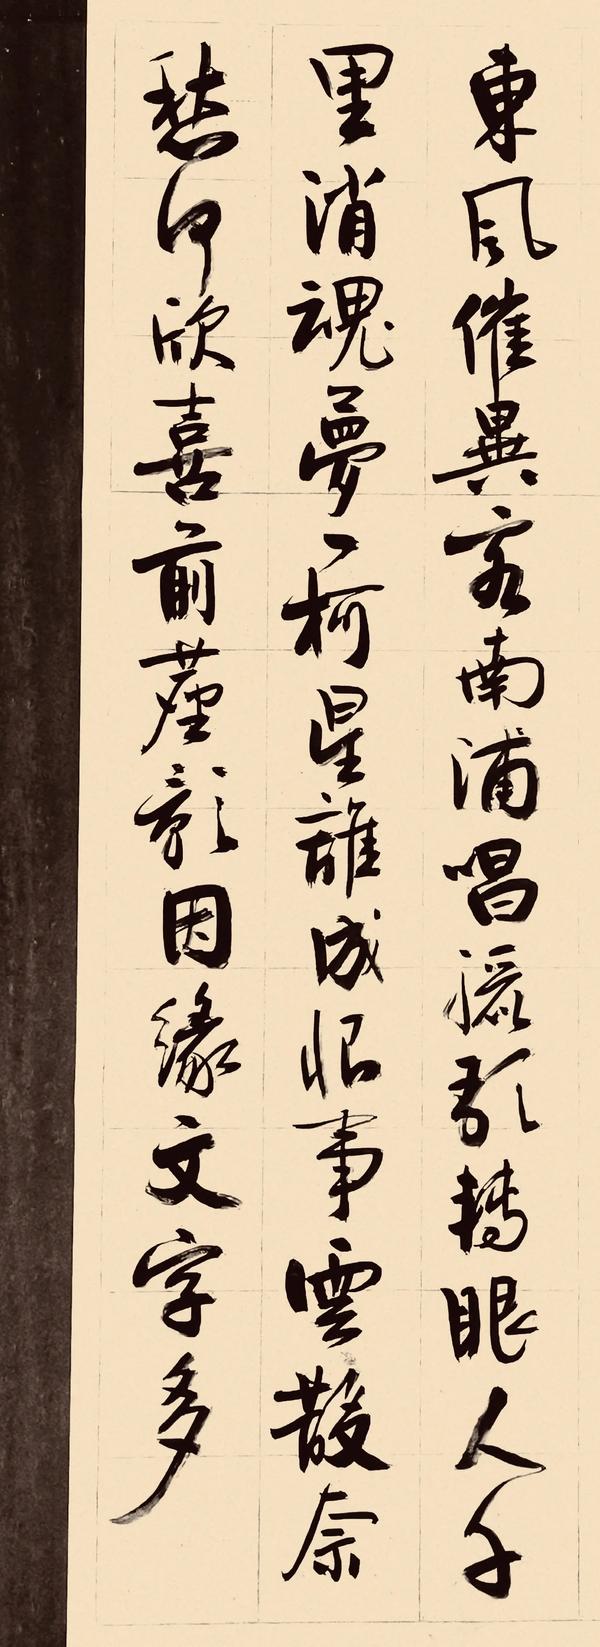 東風催異客南浦唱驪歌轉眼人千
里消魂夢一柯星離成恨事雲散奈
愁何欣喜前塵影因緣文字多